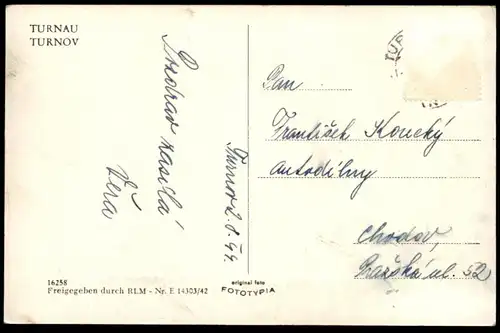 TURNAU
TURNOV
Pozdrav zasílá
Věra
Turnov 2.8.44.
Pan
František Koucký
autodílny
Chodov,
Pražská ul. 52
16258
Freigegeben durch RLM - Nr. E 14303/42
original foto
FOTOTYPIA